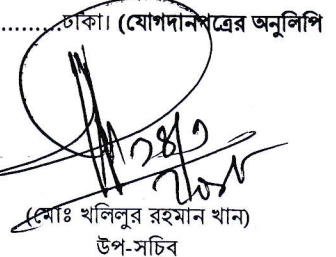 ..........ঢাকা। (যোগদানপত্রের অনুলিপি
(মোঃ খলিলুর রহমান খান)
উপ-সচিব